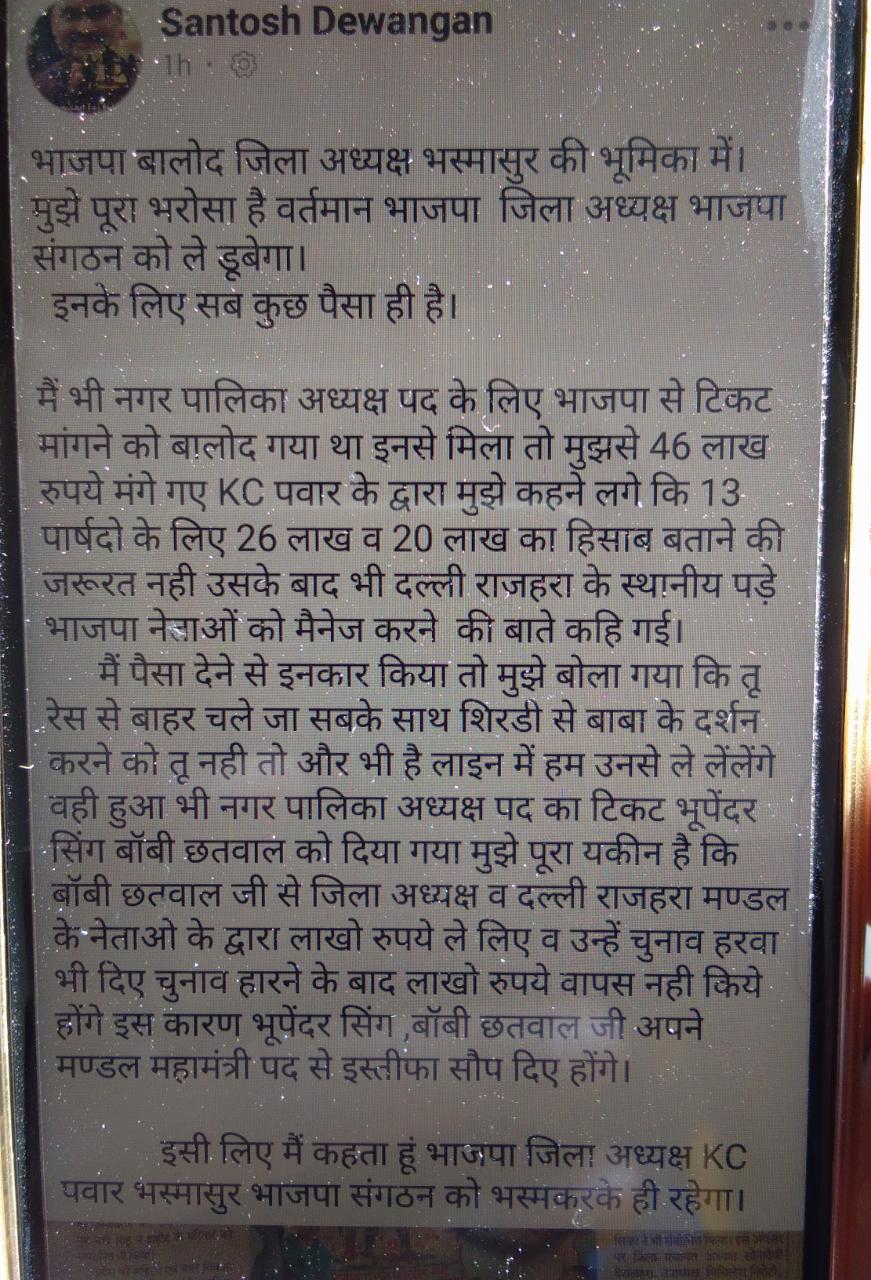 Santosh Dewangan
1h
भाजपा बालोद जिला अध्यक्ष भस्मासुर की भूमिका में।
मुझे पूरा भरोसा है वर्तमान भाजपा जिला अध्यक्ष भाजपा
संगठन को ले डूबेगा।
इनके लिए सब कुछ पैसा ही है।
मैं भी नगर पालिका अध्यक्ष पद के लिए भाजपा से टिकट
मांगने को बालोद गया था इनसे मिला तो मुझसे 46 लाख
रुपये मंगे गए KC पवार के द्वारा मुझे कहने लगे कि 13
पार्षदो के लिए 26 लाख व 20 लाख का हिसाब बताने की
जरूरत नही उसके बाद भी दल्ली राजहरा के स्थानीय पड़े
भाजपा नेताओं को मैनेज करने की बाते कहि गई।
मैं पैसा देने से इनकार किया तो मुझे बोला गया कि तू
रेस से बाहर चले जा सबके साथ शिरडी से बाबा के दर्शन
करने को तू नही तो और भी है लाइन में हम उनसे ले लेंलेंगे
वही हुआ भी नगर पालिका अध्यक्ष पद का टिकट भूपेंदर
सिंग बॉबी छतवाल को दिया गया मुझे पूरा यकीन है कि
बॉबी छतवाल जी से जिला अध्यक्ष व दल्ली राजहरा मण्डल
के नेताओ के द्वारा लाखो रुपये ले लिए व उन्हें चुनाव हरवा
भी दिए चुनाव हारने के बाद लाखो रुपये वापस नही किये
होंगे इस कारण भूपेंदर सिंग ,बॉबी छतवाल जी अपने
मण्डल महामंत्री पद से इस्तीफा सौप दिए होंगे।
इसी लिए मैं कहता हूं भाजपा जिला अध्यक्ष KC
पवार भस्मासुर भाजपा संगठन को भस्मकरके ही रहेगा।